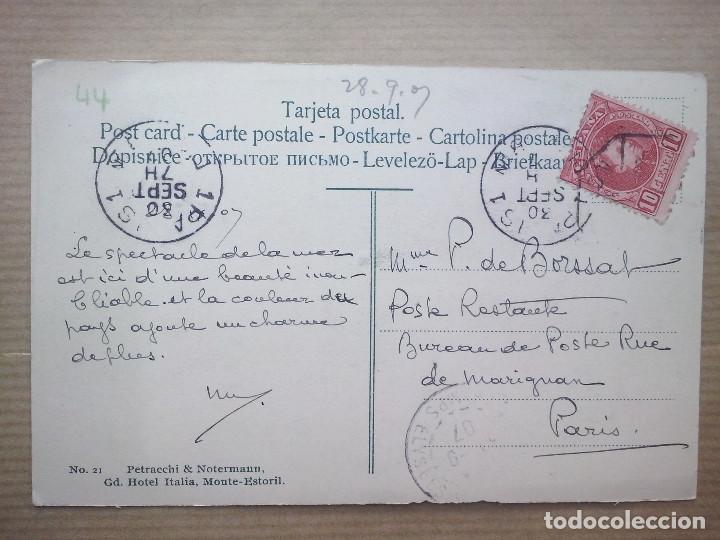 44
28.9.07
Tarjeta postal.
Post card - Carte postale - Postkarte - Cartolina postale
Dopisnice - открытое письмо - Levelező-Lap - Briefkaart
ESPAÑA
10
10
30
7H
SEPT
30
SEPT
07
Le spectacle de la mer
est ici d'une beauté inou-
bliable. et la couleur du
pays ajoute un charme
de plus.
Mme P. de Borssat
Poste Restante
Bureau de Poste Rue
de Marignan
Paris.
07
No. 21 Petracchi & Notermann,
Gd. Hotel Italia, Monte-Estoril.
todocoleccion